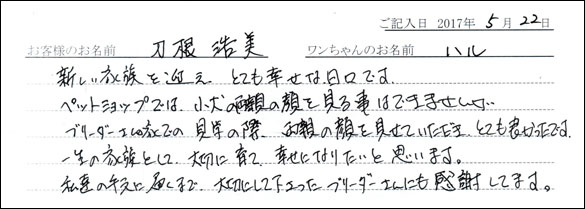 ご記入日 2017年 5月 22日
お客様のお名前 刀根 浩美 ワンちゃんのお名前 ハル
新しい家族を迎え、とても幸せな日々です。
ペットショップでは、小犬の両親の顔を見る事はできませんが、
ブリーダーさんの家での見学の際、両親の顔を見せていただき、とても良かったです。
一生の家族として、大切に育て、幸せになりたいと思います。
私達の手元に届くまで、大切にして下さったブリーダーさんにも感謝してます。